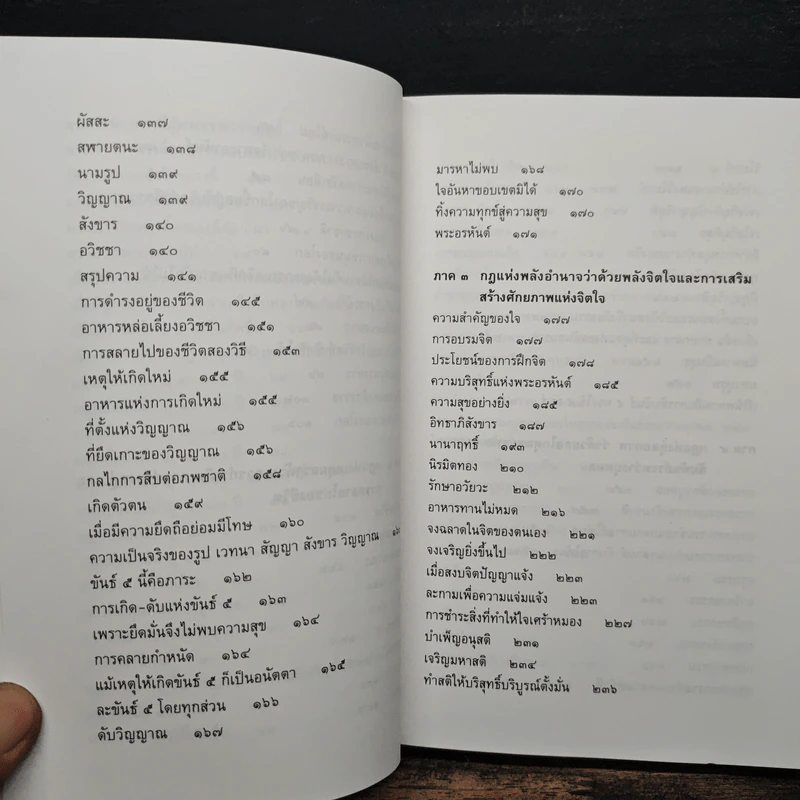 ผัสสะ ๑๓๗
สฬายตนะ ๑๓๘
นามรูป ๑๓๙
วิญญาณ ๑๓๙
สังขาร ๑๔๐
อวิชชา ๑๔๐
สรุปความ ๑๔๑
การดำรงอยู่ของชีวิต ๑๔๕
อาหารหล่อเลี้ยงอวิชชา ๑๕๑
การสลายไปของชีวิตสองวิธี ๑๕๓
เหตุให้เกิดใหม่ ๑๕๕
อาหารแห่งการเกิดใหม่ ๑๕๕
ที่ตั้งแห่งวิญญาณ ๑๕๖
ที่ยึดเกาะของวิญญาณ ๑๕๖
กลไกการสืบต่อภพชาติ ๑๕๘
เกิดตัวตน ๑๕๙
เมื่อมีความยึดถือย่อมมีโทษ ๑๖๐
ความเป็นจริงของรูป เวทนา สัญญา สังขาร วิญญาณ
ขันธ์ ๕ นี้คือภาระ ๑๖๒
การเกิด-ดับแห่งขันธ์ ๕ ๑๖๓
เพราะยึดมั่นจึงไม่พบความสุข ๑๖๔
การคลายกำหนัด ๑๖๔
แม้เหตุให้เกิดขันธ์ ๕ ก็เป็นอนัตตา ๑๖๕
ละขันธ์ ๕ โดยทุกส่วน ๑๖๖
ดับวิญญาณ ๑๖๗
มารหาไม่พบ ๑๖๘
ใจอันหาขอบเขตมิได้ ๑๗๐
ทิ้งความทุกข์สู่ความสุข ๑๗๐
พระอรหันต์ ๑๗๑
ภาค ๓ กฎแห่งพลังอำนาจว่าด้วยพลังจิตใจและการเสริม
สร้างศักยภาพแห่งจิตใจ
ความสำคัญของใจ ๑๗๗
การอบรมจิต ๑๗๗
ประโยชน์ของการฝึกจิต ๑๗๘
ความบริสุทธิ์แห่งพระอรหันต์ ๑๘๕
ความสุขอย่างยิ่ง ๑๘๕
อิทธาภิสังขาร ๑๘๗
นานาฤทธิ์ ๑๙๓
นิรมิตทอง ๒๑๐
รักษาอวัยวะ ๒๑๒
อาหารทานไม่หมด ๒๑๖
จงฉลาดในจิตของตนเอง ๒๒๑
จงเจริญยิ่งขึ้นไป ๒๒๒
เมื่อสงบจิตปัญญาแจ้ง ๒๒๓
ละกามเพื่อความแจ่มแจ้ง ๒๒๓
การชำระสิ่งที่ทำให้ใจเศร้าหมอง ๒๒๗
บำเพ็ญอนุสติ ๒๓๑
เจริญมหาสติ ๒๓๔
ทำสติให้บริสุทธิ์บริบูรณ์ตั้งมั่น ๒๓๖